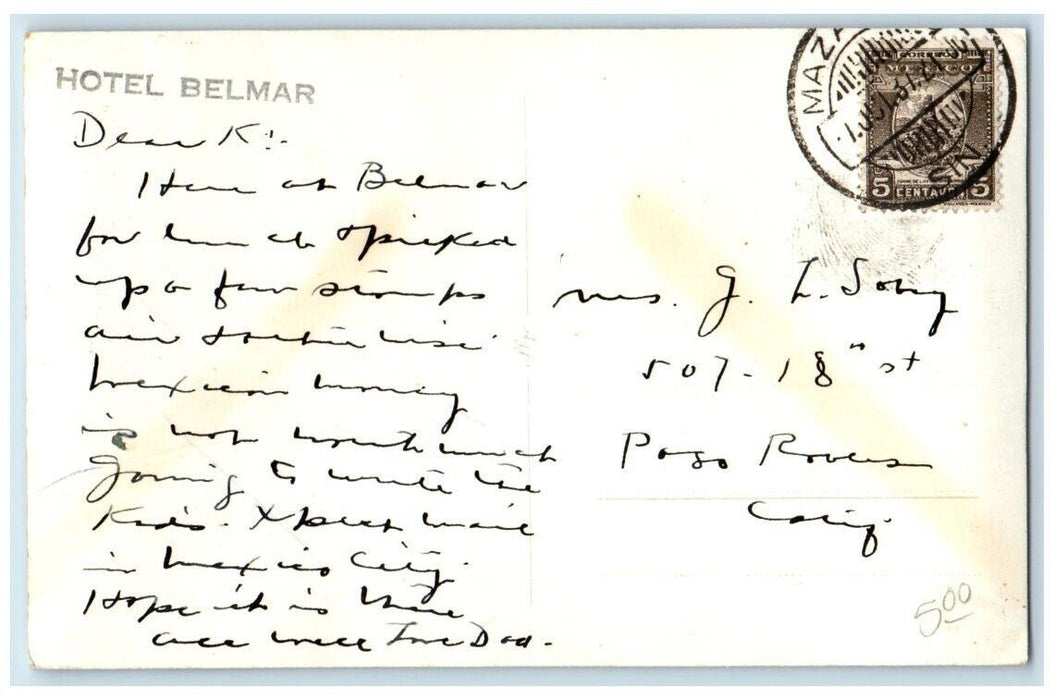 HOTEL BELMAR
Dear K:-
Here at Belmar
for lunch & picked
up a few stamps
air
Mexican money
is not worth much
Going to write the
Kids. Xpect mail
in Mexico City.
Hope it is there
all well Love Dad.
MAZ
SIN
CORREOS
MEXICO
5 CENTAVOS 5
Mrs. J. L.
507-18" st
Paso Robles
Calif
5.00